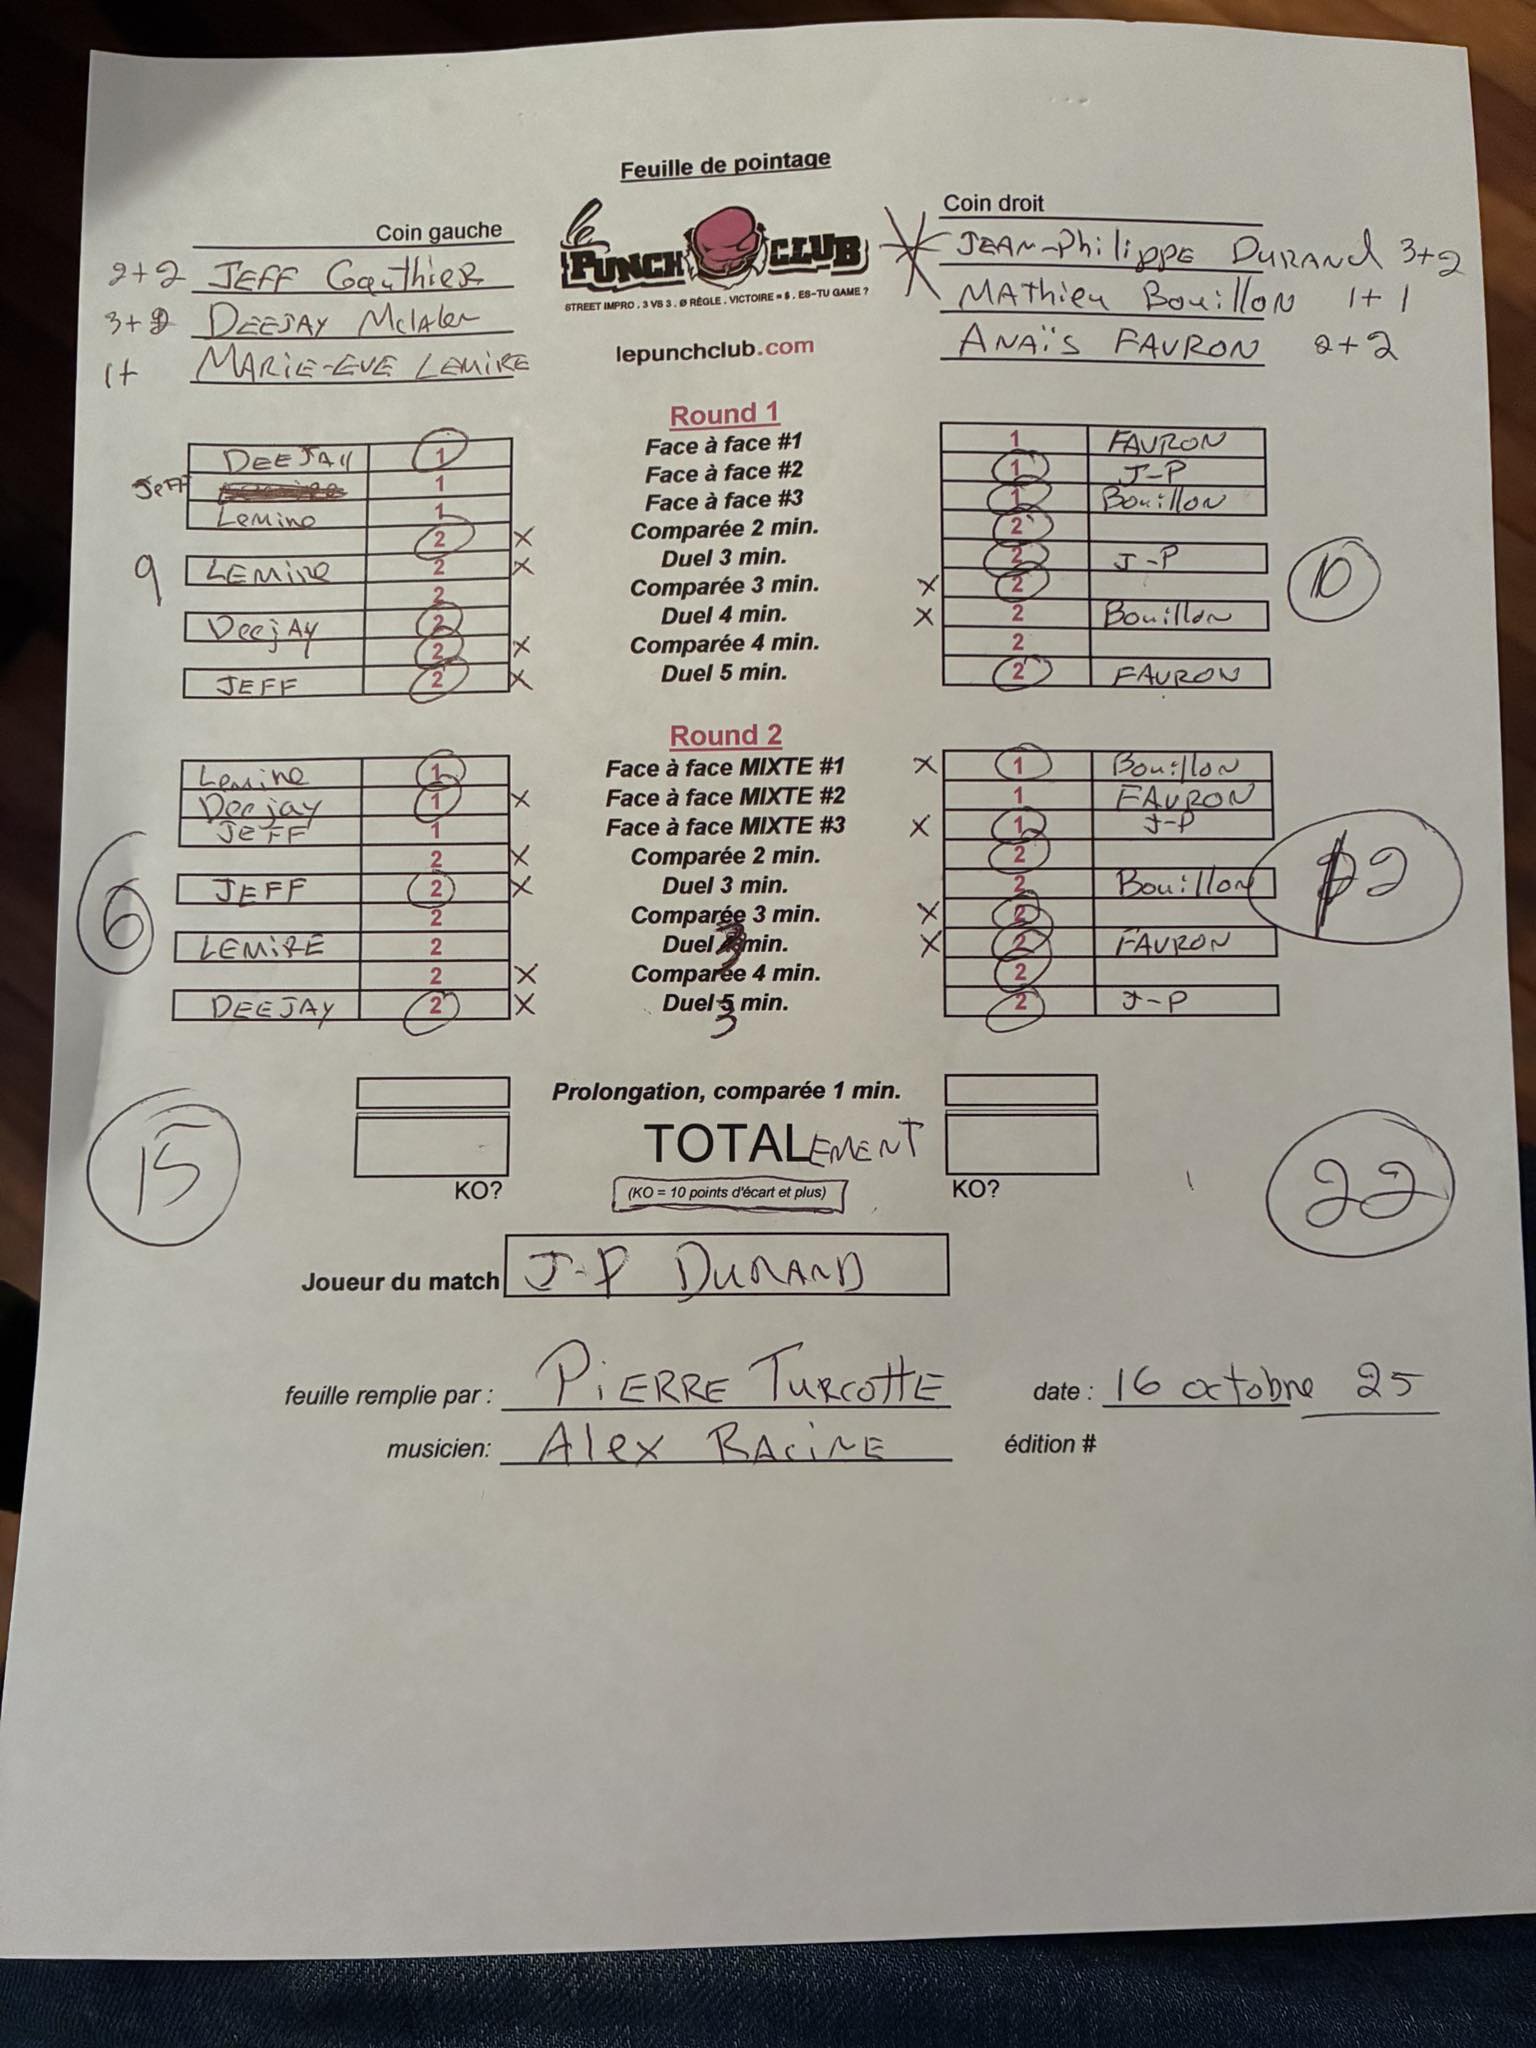 Feuille de pointage
Coin gauche
2+2 JEFF Gauthier
3+2 DEEJAY McIaler
1+ MARIE-EVE LEMIRE
le PUNCH CLUB
STREET IMPRO . 3 VS 3 . Ø RÈGLE . VICTOIRE = $ . ES-TU GAME ?
lepunchclub.com
Coin droit
JEAN-Philippe DURAND 3+2
MAthieu Bouillon 1+1
ANAÏS FAVRON 2+2
Round 1
DEEJAY 1 Face à face #1 1 FAVRON
JEFF 1 Face à face #2 1 J-P
Lemire 1 Face à face #3 1 Bouillon
2 X Comparée 2 min. 2
LEMIRE 2 X Duel 3 min. 2 J-P
2 Comparée 3 min. X 2
DeejAY 2 Duel 4 min. X 2 Bouillon
2 X Comparée 4 min. 2
JEFF 2 X Duel 5 min. 2 FAVRON
9 10
Round 2
Lemire 1 Face à face MIXTE #1 X 1 Bouillon
Deejay 1 X Face à face MIXTE #2 1 FAVRON
JEFF 1 Face à face MIXTE #3 X 1 J-P
2 X Comparée 2 min. 2
JEFF 2 X Duel 3 min. 2 Bouillon
2 Comparée 3 min. X 2
LEMIRE 2 Duel 3 min. X 2 FAVRON
2 X Comparée 4 min. 2
DEEJAY 2 X Duel 5 min. 2 J-P
3
6 12
Prolongation, comparée 1 min.
15 TOTALEMENT 22
KO? (KO = 10 points d'écart et plus) KO?
Joueur du match J-P DURAND
feuille remplie par : PiERRE TURCOTTE date : 16 octobre 25
musicien: Alex RACINE édition #